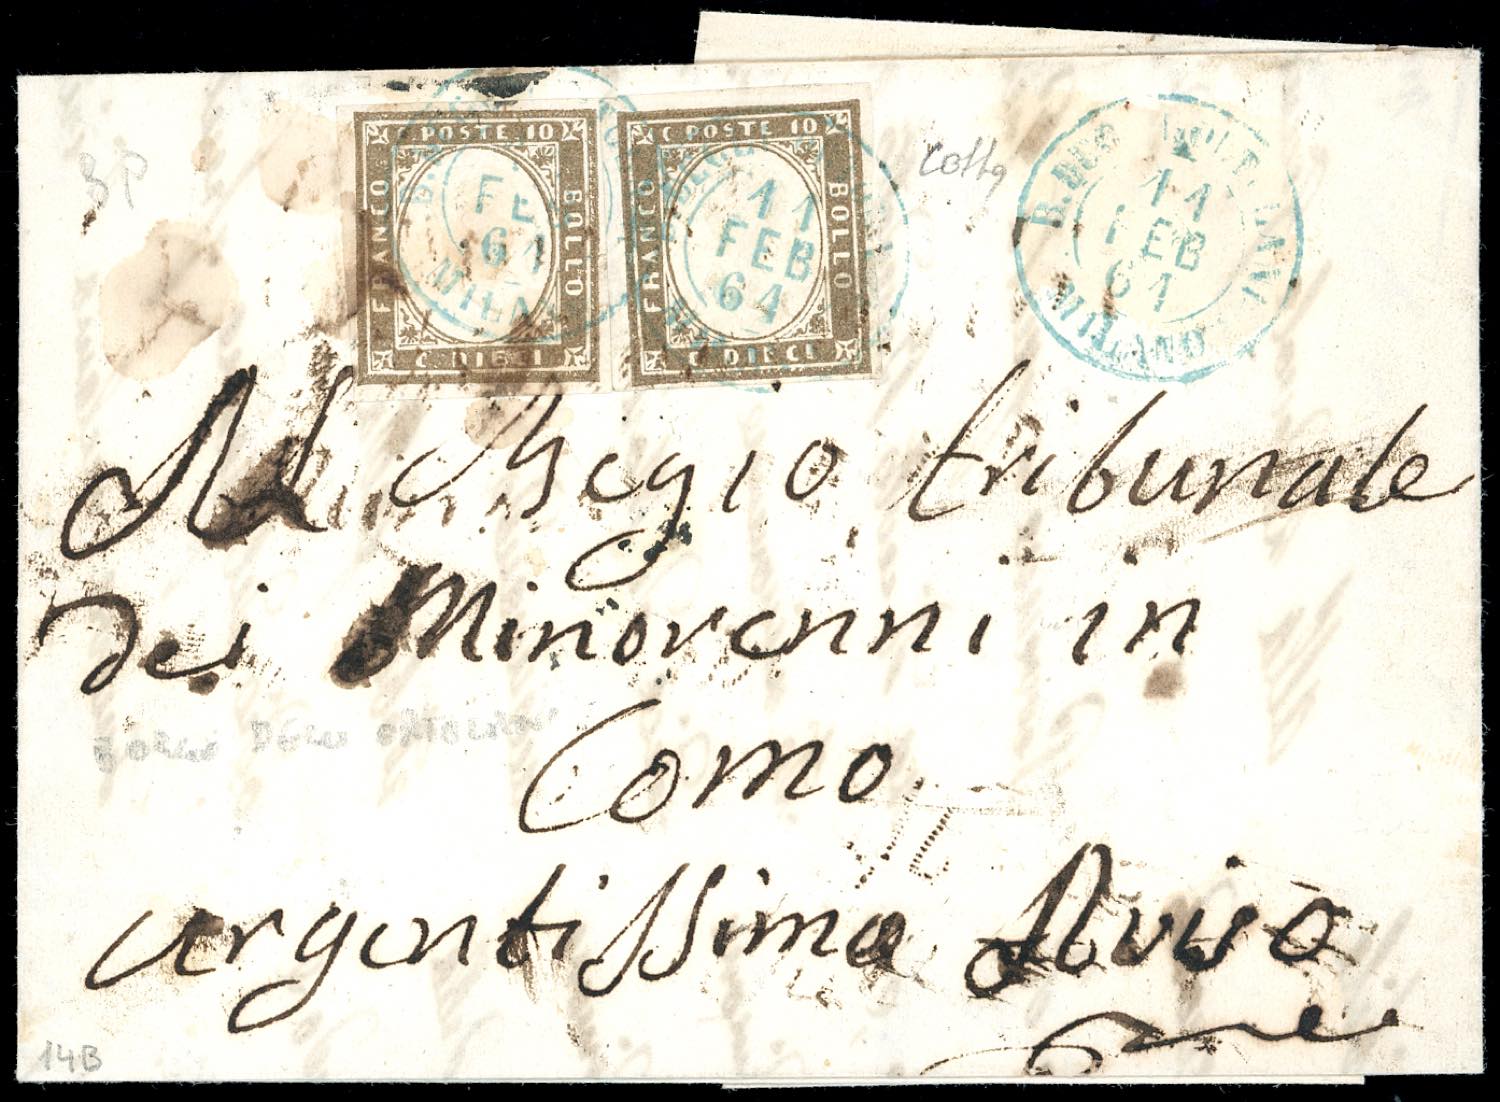 C POSTE 10
FRANCO
BOLLO
C DIECI
FE
61
MILA
C POSTE 10
FRANCO
BOLLO
C DIECI
11
FEB
61
11
FEB
61
MILANO
Al Regio tribunale
dei Minorenni in
Como
urgentissimo Aviso
14B